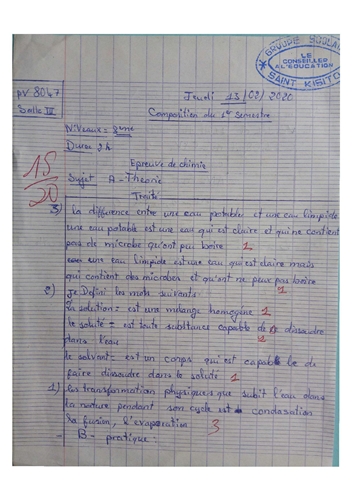 GROUPE SCOLAI
LE
CONSEILLER
A L'EDUCATION
SAINT KISITO
PV 8047
Salle IV
Jeudi 13/02/2020
Composition du 1er semestre
Niveaux = 3eme
Duree 2h
Epreuve de chimie
15/20
Sujet A - Theorie
Traite
3) la difference entre une eau potable et une eau limpide
une eau potable est une eau qui est claire et qui ne contient
pas de microbe qu'ont peu boire 1
une eau limpide est une eau qui est claire mais
qui contient des microbes et qu'ont ne peux pas boire
1
2) Je Defini les mots suivants
la solution = est une melange homogène 1
le soluté = est toute substance capable de dissoudre
dans l'eau
le solvant = est un corps qui est capable de
faire dissoudre dans le soluté 1
1) les transformation physiques que subit l'eau dans
la nature pendant son cycle est - condasation
la fusion, l'evaporation 3
- B - pratique :